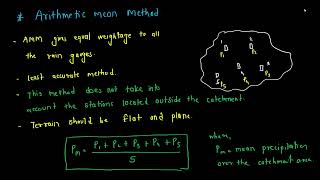 * Arithmetic mean Method
- AMM gives equal weightage to all the rain gauges.
- Least accurate method.
- This method does not take into account the stations located outside the catchment.
- Terrain should be flat and plane.
Pm = P1 + P2 + P3 + P4 + P5 / 5
P1
P2
P3
P4
P5
where,
Pm = mean precipitation over the catchment area